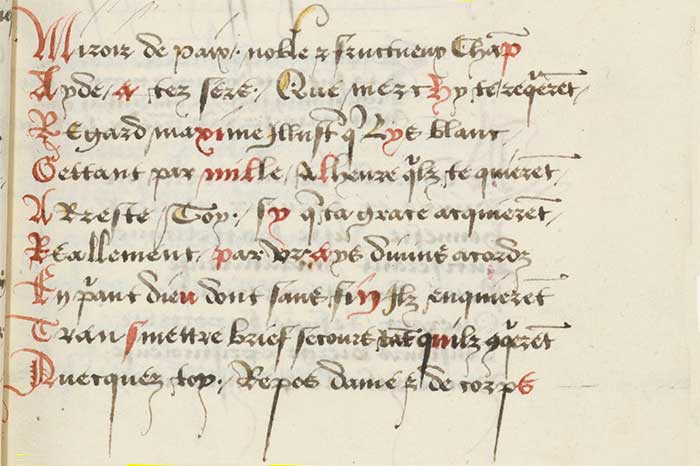 Miroir de paix / noble & fructueux Chāp
Ayde / a tez serz / Que / merchy te reqerēt /
Regard / maxime Illust q Lys blanc
Gettant par mille / alheure qlz te quierēt /
Arreste / Toy / sy q ta grace acquierēt /
Reallement / par vrays divins acordz
En pant dieu dont sans fin Ilz enquierēt
Transmettre brief secours tāt quilz
Auecquez toy / Repos dame & de corps